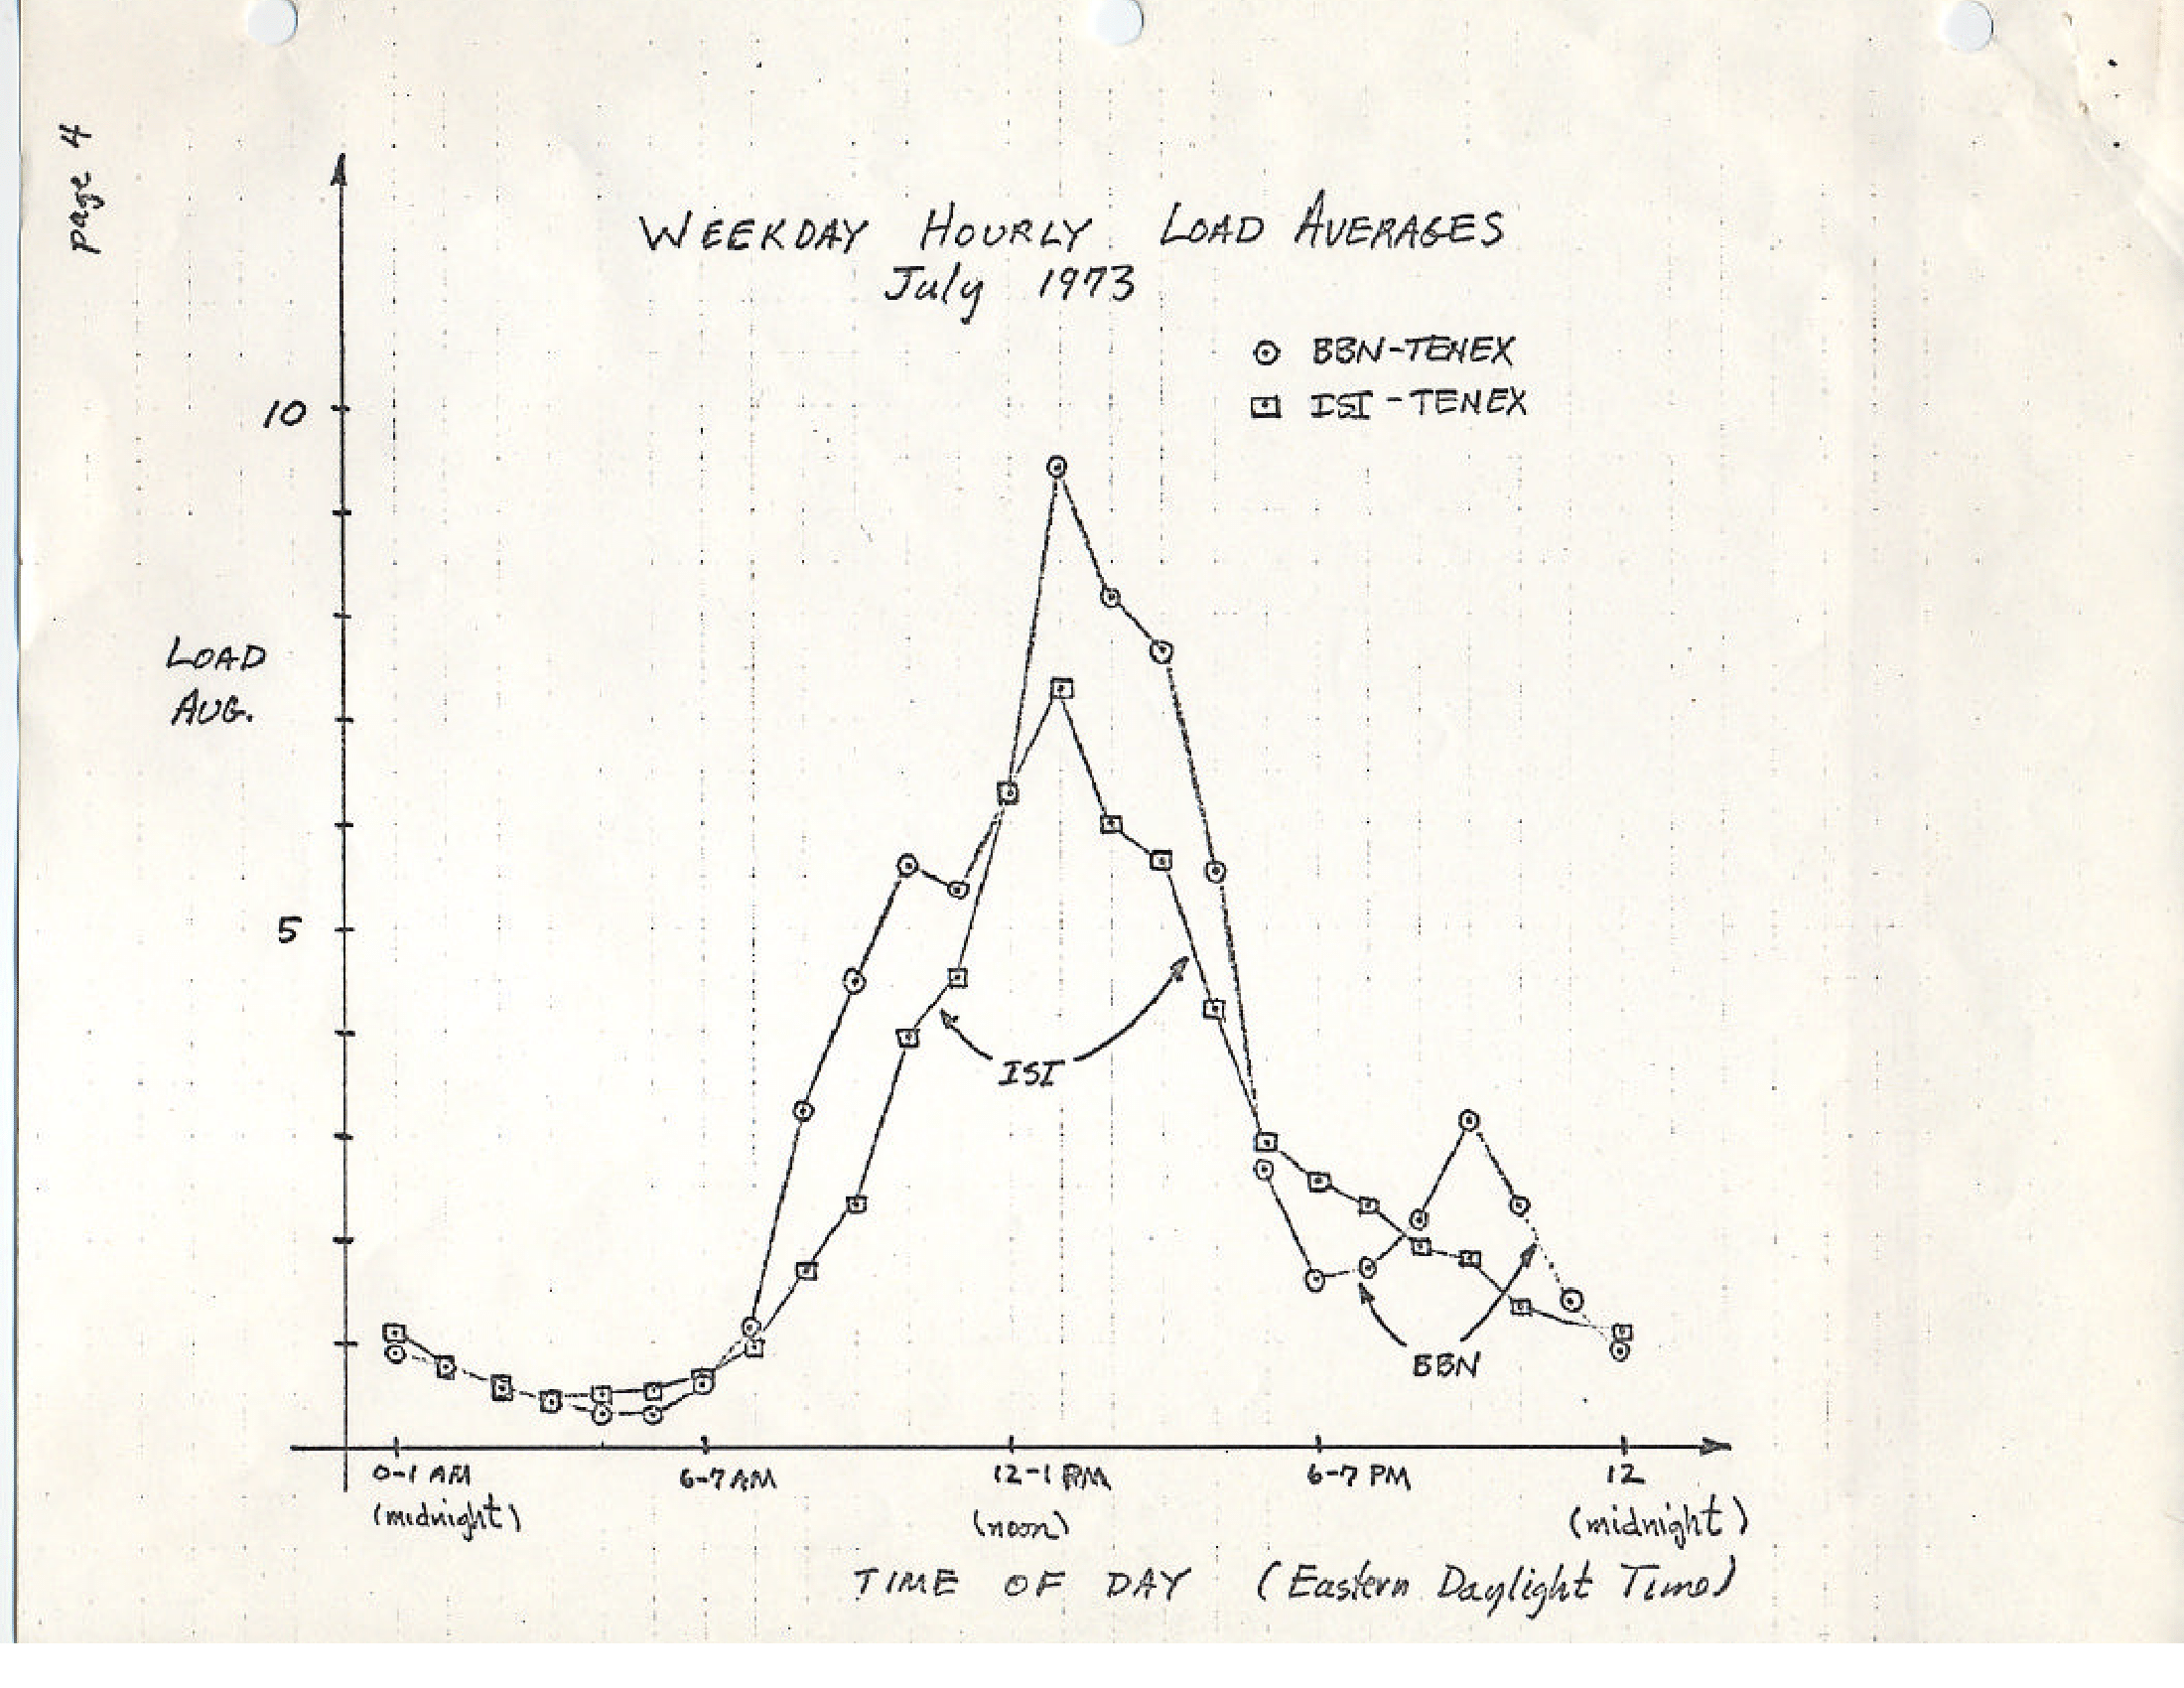 page 4
WEEKDAY HOURLY LOAD AVERAGES
July 1973
BBN-TENEX
ISI-TENEX
10
LOAD
AVG.
5
ISI
BBN
0-1 AM 6-7 AM 12-1 PM 6-7 PM 12
(midnight) (noon) (midnight)
TIME OF DAY (Eastern Daylight Time)